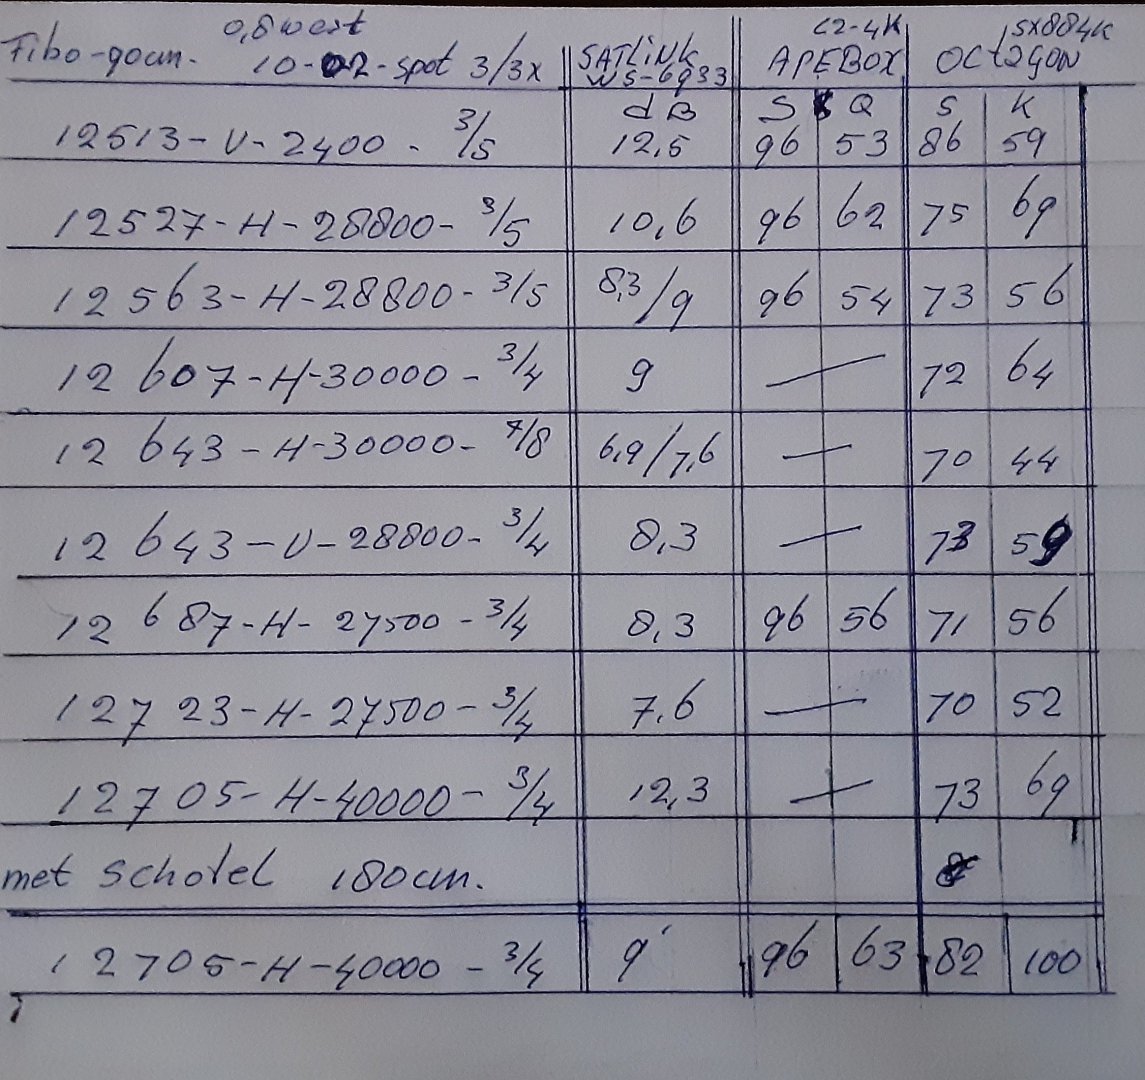 0,8 west
Fibo-90cm. 10-02-spot 3/3x SATLINK WS-6933 C2-4K APEBOX SX884K OCTAGON
dB S Q S K
12513-V-2400 - 3/5 12,5 96 53 86 59
12527-H-28800- 3/5 10,6 96 62 75 69
12563-H-28800- 3/5 8,3/9 96 54 73 56
12607-H-30000 - 3/4 9 — 72 64
12643-H-30000- 7/8 6,9/7,6 — 70 44
12643-V-28800- 3/4 8,3 — 73 59
12687-H- 27500 - 3/4 8,3 96 56 71 56
12723-H- 27500 - 3/4 7,6 — 70 52
12705-H-40000 - 3/4 12,3 — 73 69
met schotel 180cm.
12705-H-40000 - 3/4 9 96 63 82 100